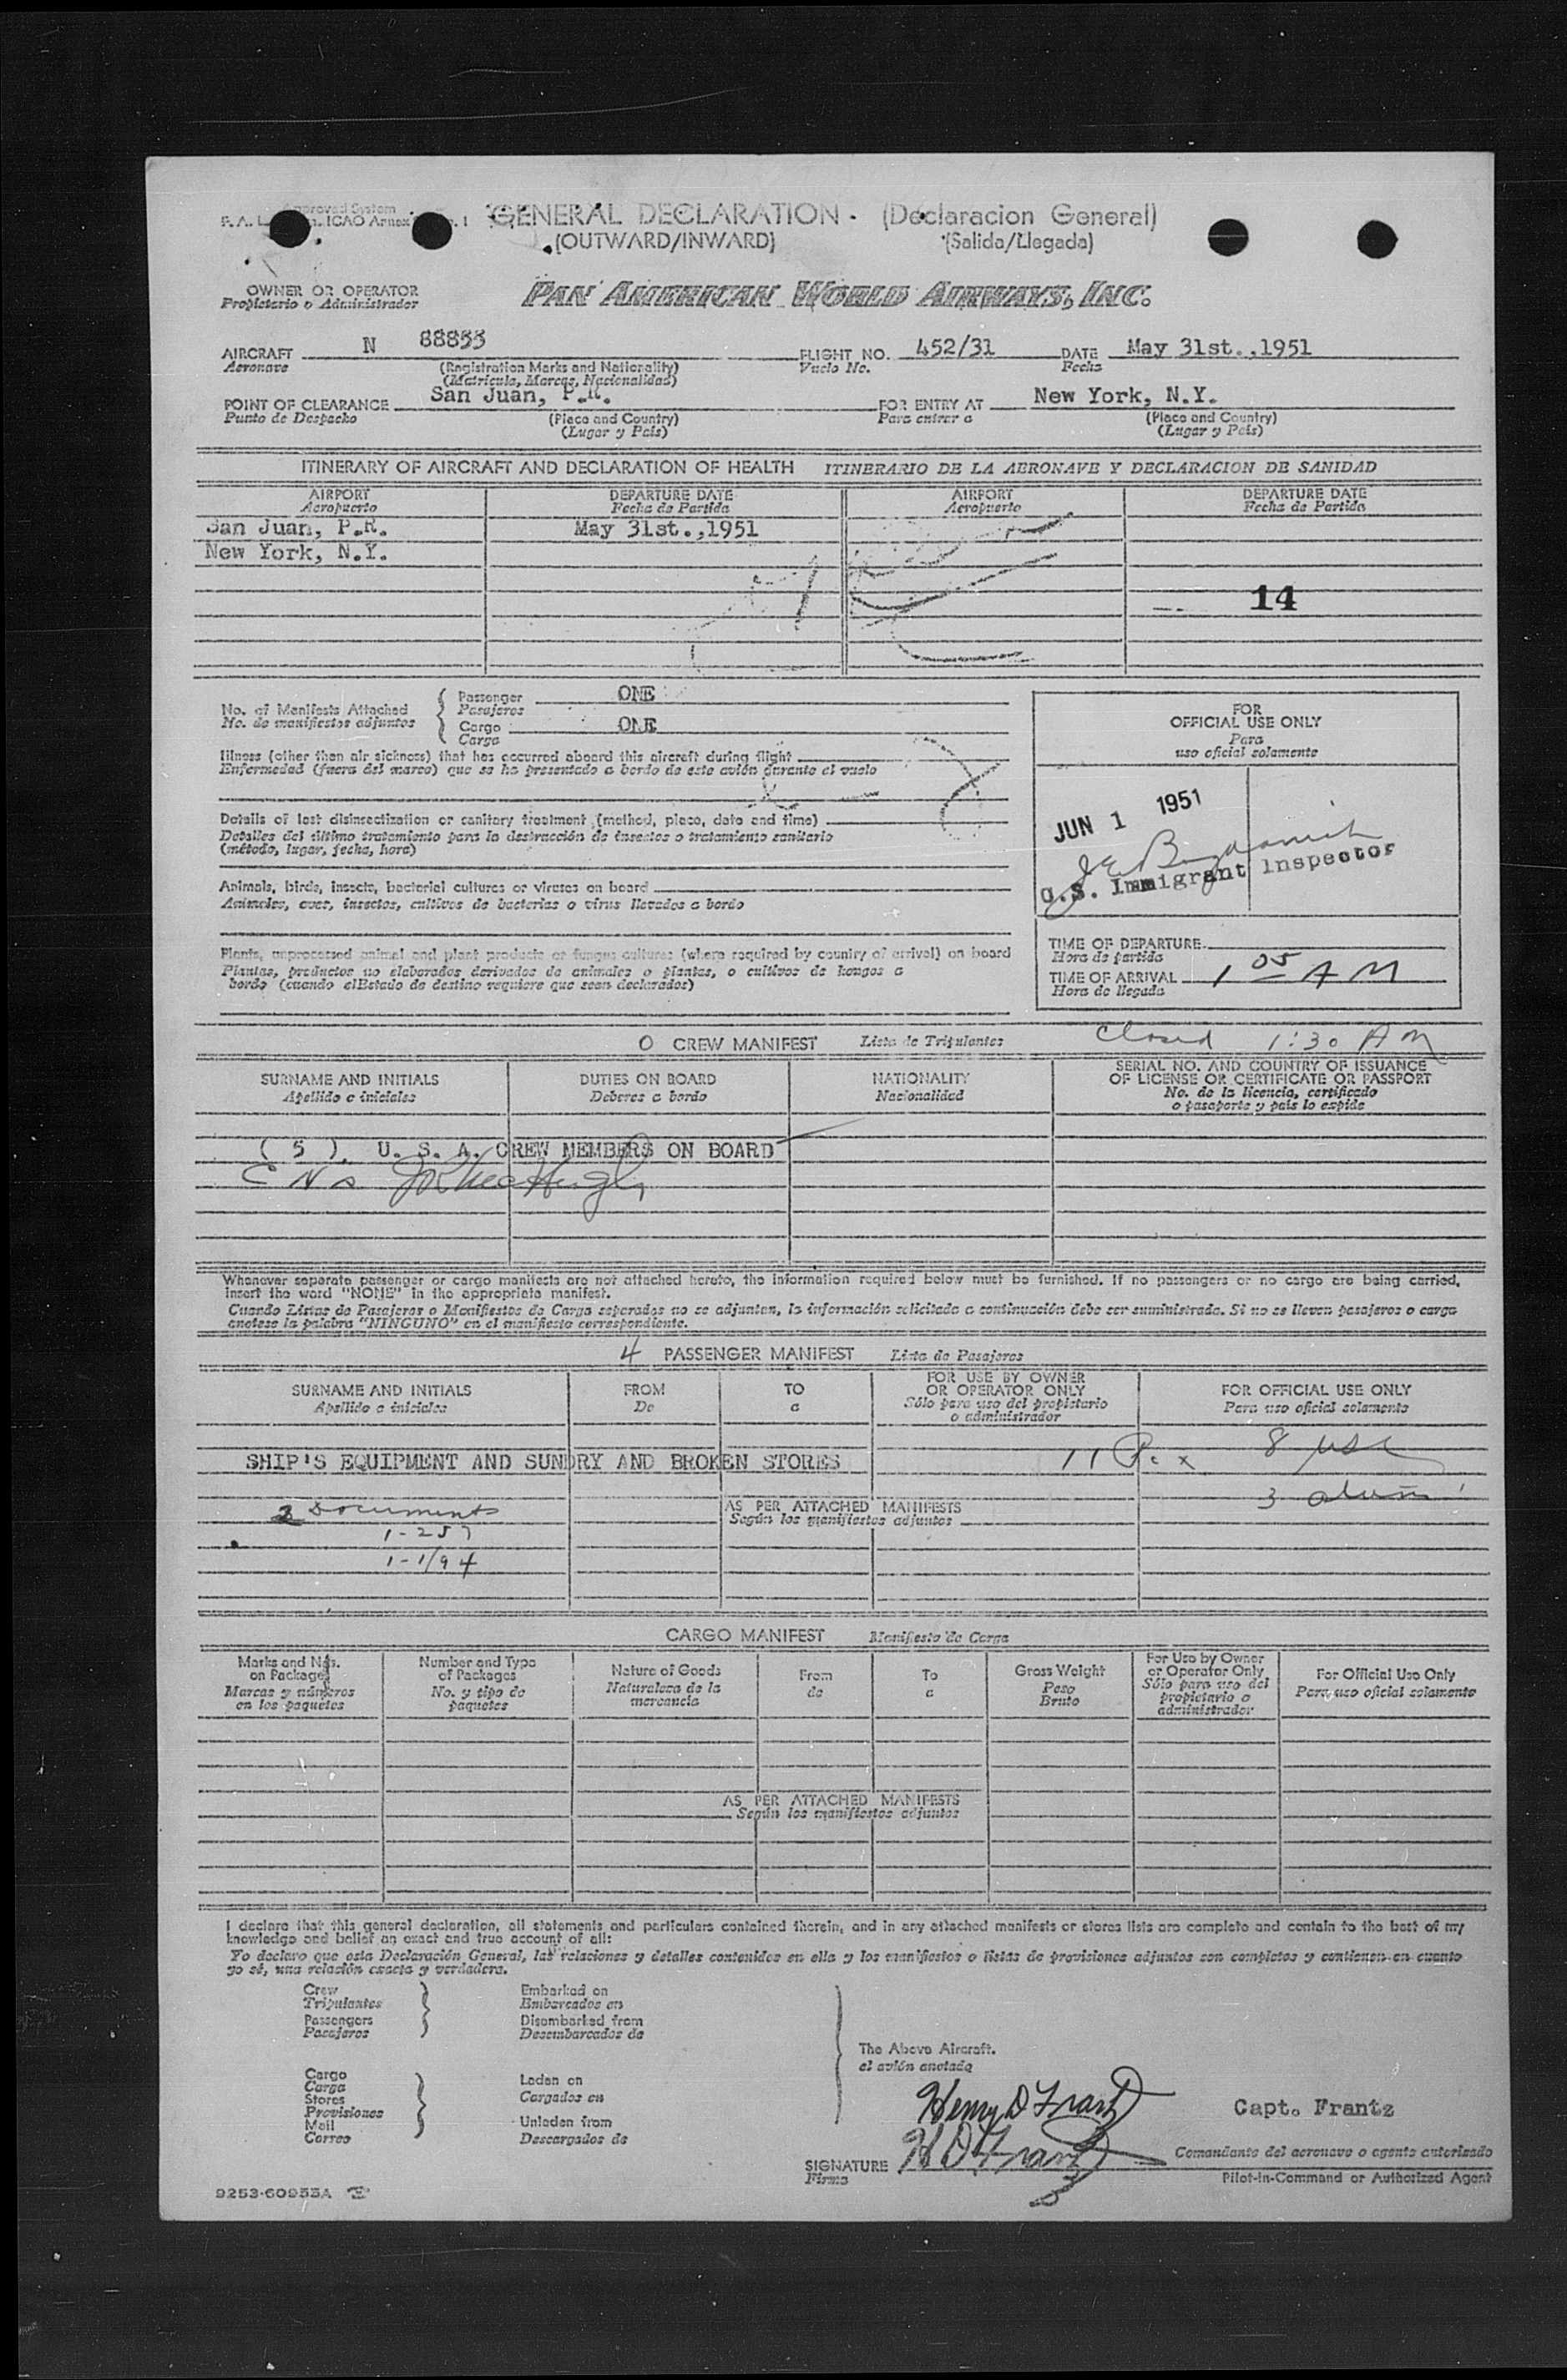 Approved System
GENERAL DECLARATION - (Declaracion General)
(OUTWARD/INWARD) (Salida/Llegada)
OWNER OR OPERATOR
Propietario o Administrador
PAN AMERICAN WORLD AIRWAYS, INC.
AIRCRAFT N 88855 FLIGHT NO. 452/31 DATE May 31st.,1951
Aeronave Vuelo No. Fecha
(Registration Marks and Nationality)
(Matricula, Marcas, Nacionalidad)
POINT OF CLEARANCE San Juan, P.R. FOR ENTRY AT New York, N.Y.
Punto de Despacho (Place and Country) Para entrar a (Place and Country)
(Lugar y Pais) (Lugar y Pais)
ITINERARY OF AIRCRAFT AND DECLARATION OF HEALTH ITINERARIO DE LA AERONAVE Y DECLARACION DE SANIDAD
AIRPORT DEPARTURE DATE AIRPORT DEPARTURE DATE
Aeropuerto Fecha de Partida Aeropuerto Fecha de Partida
San Juan, P.R. May 31st.,1951
New York, N.Y.
14
No. of Manifests Attached Passenger ONE
No. de manifiestos adjuntos Pasajeros
Cargo ONE
Carga
FOR
OFFICIAL USE ONLY
Para
uso oficial solamente
Illness (other than air sickness) that has occurred aboard this aircraft during flight
Enfermedad (fuera del mareo) que se ha presentado a bordo de este avión durante el vuelo
Details of last disinsectization or sanitary treatment (method, place, date and time)
Detalles del último tratamiento para la destrucción de insectos o tratamiento sanitario
(método, lugar, fecha, hora)
JUN 1 1951
U.S. Immigrant Inspector
Animals, birds, insects, bacterial cultures or viruses on board
Animales, aves, insectos, cultivos de bacterias o virus llevados a bordo
Plants, unprocessed animal and plant products or fungus cultures (where required by country of arrival) on board
Plantas, productos no elaborados derivados de animales o plantas, o cultivos de hongos a
bordo (cuando el Estado de destino requiere que sean declarados)
TIME OF DEPARTURE
Hora de partida
TIME OF ARRIVAL 1 05 AM
Hora de llegada
Closed 1:30 AM
0 CREW MANIFEST Lista de Tripulantes
SURNAME AND INITIALS DUTIES ON BOARD NATIONALITY SERIAL NO. AND COUNTRY OF ISSUANCE
OF LICENSE OR CERTIFICATE OR PASSPORT
Apellido e iniciales Deberes a bordo Nacionalidad No. de la licencia, certificado
o pasaporte y pais lo expide
( 5 ). U. S. A. CREW MEMBERS ON BOARD
Whenever separate passenger or cargo manifests are not attached hereto, the information required below must be furnished. If no passengers or no cargo are being carried,
insert the word "NONE" in the appropriate manifest.
Cuando Listas de Pasajeros o Manifiestos de Carga separados no se adjuntan, la información solicitada a continuación debe ser suministrada. Si no se lleven pasajeros o carga
anotese la palabra "NINGUNO" en el manifiesto correspondiente.
4 PASSENGER MANIFEST Lista de Pasajeros
SURNAME AND INITIALS FROM TO FOR USE BY OWNER
OR OPERATOR ONLY FOR OFFICIAL USE ONLY
Apellido e iniciales De a Sólo para uso del propietario
o administrador Para uso oficial solamente
SHIP'S EQUIPMENT AND SUNDRY AND BROKEN STORES
11 Pax 8 USC
3
2 Documents
AS PER ATTACHED MANIFESTS
Según los manifiestos adjuntos
1-257
1-1/94
CARGO MANIFEST Manifiesto de Carga
Marks and Nos.
on Packages
Marcas y números
en los paquetes
Number and Type
of Packages
No. y tipo de
paquetes
Nature of Goods
Naturaleza de la
mercancia
From
de
To
a
Gross Weight
Peso
Bruto
For Use by Owner
or Operator Only
Sólo para uso del
propietario o
administrador
For Official Use Only
Para uso oficial solamente
AS PER ATTACHED MANIFESTS
Según los manifiestos adjuntos
I declare that this general declaration, all statements and particulars contained therein, and in any attached manifests or stores lists are complete and contain to the best of my
knowledge and belief an exact and true account of all:
Yo declaro que esta Declaración General, las relaciones y detalles contenidos en ella y los manifiestos o listas de provisiones adjuntos son completos y contienen en cuanto
yo sé, una relación exacta y verdadera.
Crew Embarked on
Tripulantes Embarcados en
Passengers Disembarked from
Pasajeros Desembarcados de
The Above Aircraft.
el avión anotado
Cargo Laden on
Carga Cargados en
Stores
Provisiones
Mail Unladen from
Correo Descargados de
Henry D Frantz
Capt. Frantz
SIGNATURE H D Frantz
Firma
Comandante del aeronave o agente autorizado
Pilot-in-Command or Authorized Agent
9253-60953A